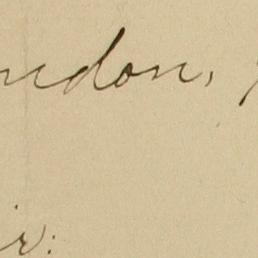 ndon,
ir: